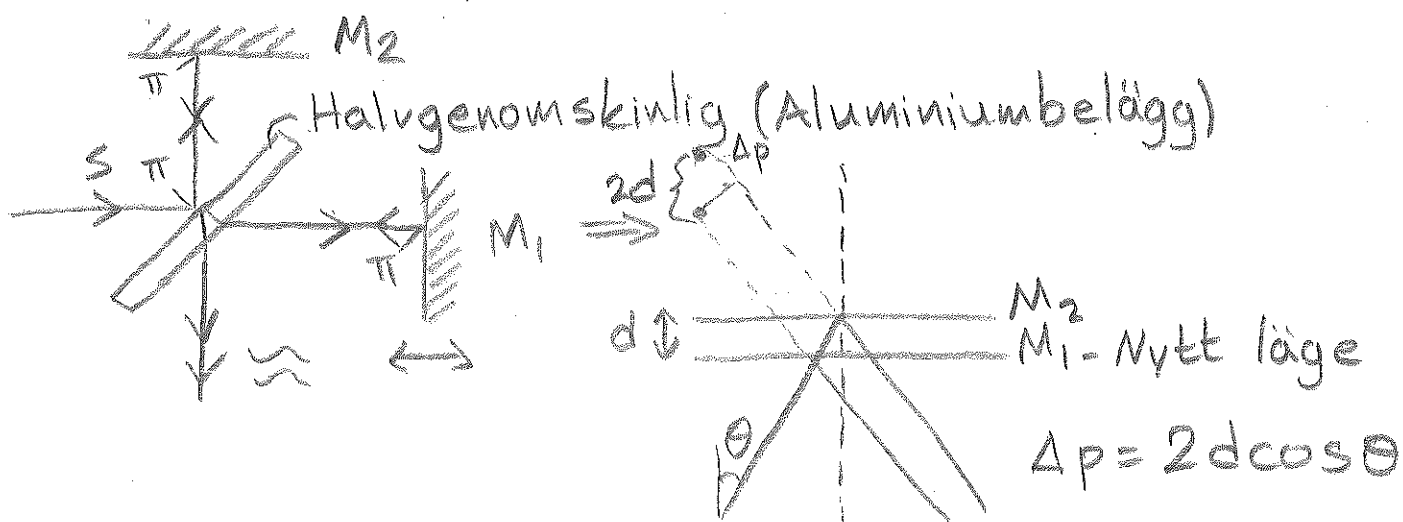 M₂
π
Halvgenomskinlig (Aluminiumbelägg)
S
π
Δp
2d
M₁
π
M₂
d
M₁-Nytt läge
θ
Δp=2dcosθ